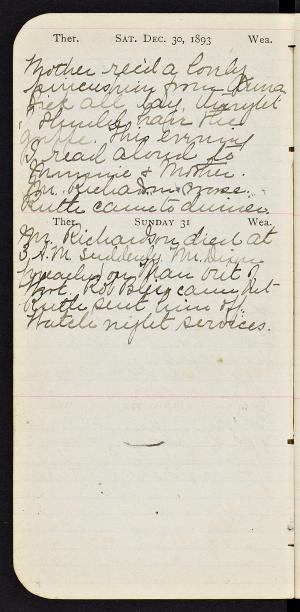 Ther. SAT. DEC. 30, 1893 Wea.
Mother rec'd a lovely
pincushion from Anna
sick all day. Maryet
I think has the
grippe. This evening
I read aloud to
Mother.
Mr. Richardson worse.
Ruth came to dinner.
Ther. SUNDAY 31 Wea.
Mr. Richardson died at
3 A.M. suddenly. Mr. Dixon
preached on Man out of
Work. Rob came but
Ruth sent him off.
Watch night services.